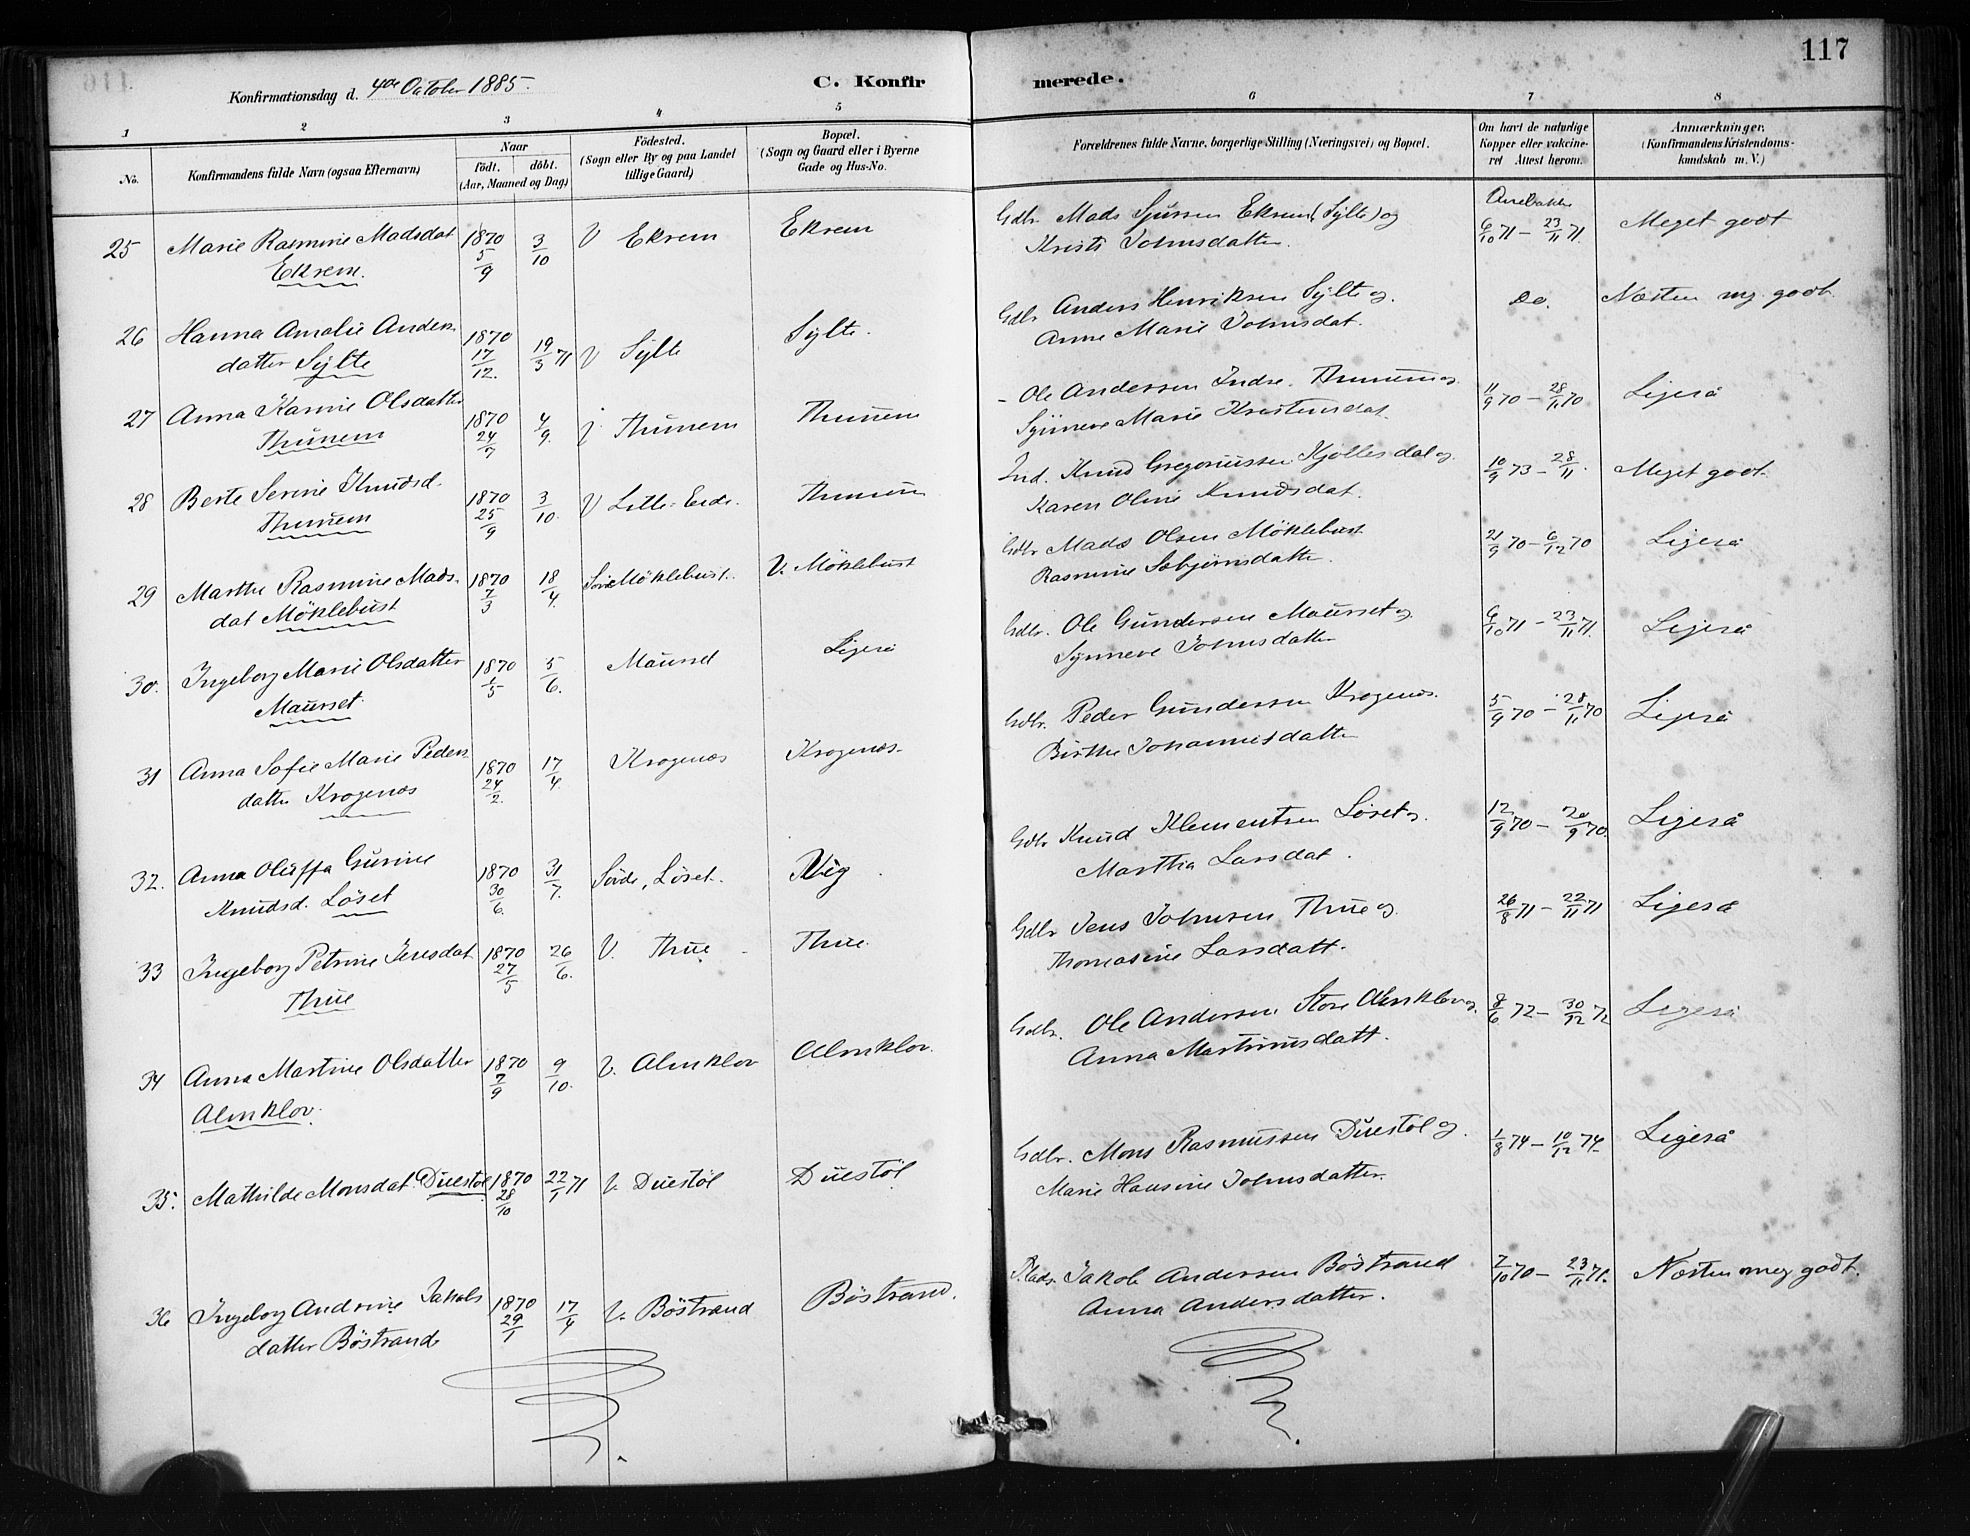 117
Konfirmationsdag d. 4de October 1885.
C. Konfirmerede.
1 2 3 4 5 6 7 8
No.
Konfirmandens fulde Navn (ogsaa Efternavn)
Naar
født. døbt.
(Aar, Maaned og Dag)
Fødested.
(Sogn eller By og paa Landet
tillige Gaard)
Bopæl.
(Sogn og Gaard eller i Byerne
Gade og Hus-No.
Forældrenes fulde Navne, borgerlige Stilling (Næringsvei) og Bopæl.
Om havt de naturlige
Kopper eller vakcine-
ret Attest herom.
Anmærkninger.
(Konfirmandens Kristendoms-
kundskab m. V.)
25 Marie Rasmine Madsdat 1870 3/10 V Ekrem Ekrem
Ekrem. 5/9
Gdbr. Mads Sjursen Ekrem (Sylte) og 6/10 71 – 23/11 71 Meget godt
Kristi Johnsdatter.
26 Hanna Amalie Anders 1870 19/3 71 V Sylte Sylte.
datter Sylte 17/12.
Gdbr Anders Henriksen Sylte og Do. Næsten mg. godt.
Anne Marie Johnsdat.
27 Anna Karine Olsdatter 1870 4/9. V Thunem Thunem
Thunem 24/7
- Ole Andersen Indre Thunem og 11/9 70 – 28/11 70 Ligeså
Synneve Marie Kristensdat.
28 Berte Serine Knudsd. 1870 3/10. V Lille-Eide. Thunem
Thunem 25/9
Ind. Knud Gregoriussen Kjøllesdal og 10/9 73 – 28/11. Meget godt.
Karen Oline Knudsdat.
29 Marthe Rasmine Mads- 1870 18/4. Søre Möklebust. V. Möklebust
dat Möklebust 7/3
Gdbr Mads Olsen Möklebust 21/9 70 – 6/12 70 Ligeså
Rasmine Sebjørnsdatter.
30. Ingeborg Marie Olsdatter 1870 5/6. Maurset Ligeså
Maurset. 1/5
Gdbr. Ole Gundersen Maurset og 6/10 71 – 23/11 71. Ligeså
Synneve Johnsdatter
31 Anna Sofie Marie Peders 1870 17/4. Krogenæs Krogenæs.
datter Krogenæs 24/2.
Gdbr. Peder Gundersen Krogenæs. 5/9 70 – 28/11 70 Ligeså
Birthe Johannesdatter
32. Anna Oluffa Gurine 1870 31/7. Søvde, Löset. Vig.
Knudsd. Löset 30/6.
Gdbr Knud Klementsen Löset og. 12/9 70 – 20/9 70 Ligeså
Martha Larsdat.
33 Ingeborg Petrine Jensdat 1870 26/6. V. Thue Thue.
Thue 27/5
Gdbr Jens Johnsen Thue og. 26/8 71 – 22/11 71 Ligeså
Thomasine Larsdatt.
34 Anna Martine Olsdatter 1870 9/10. V. Almklov Almklov.
Almklov. 7/9
Gdbr. Ole Andersen Store Almklov og. 8/6 72 – 30/12 72 Ligeså
Anna Martinusdatt.
35. Mathilde Monsdat. Duestöl 1870 22/1 71 V. Duestöl Duestöl
28/10
Gdbr. Mons Rasmussen Duestöl og. 1/8 74 – 10/12 74. Ligeså
Marie Hansine Johnsdatter.
36 Ingeborg Andrine Jakobs 1870 17/4 V. Böstrand Böstrand.
datter Böstrand 29/1
Plads. Jakob Andersen Böstrand 7/10 70 – 23/11 71. Næsten meg godt.
Anna Andersdatter.